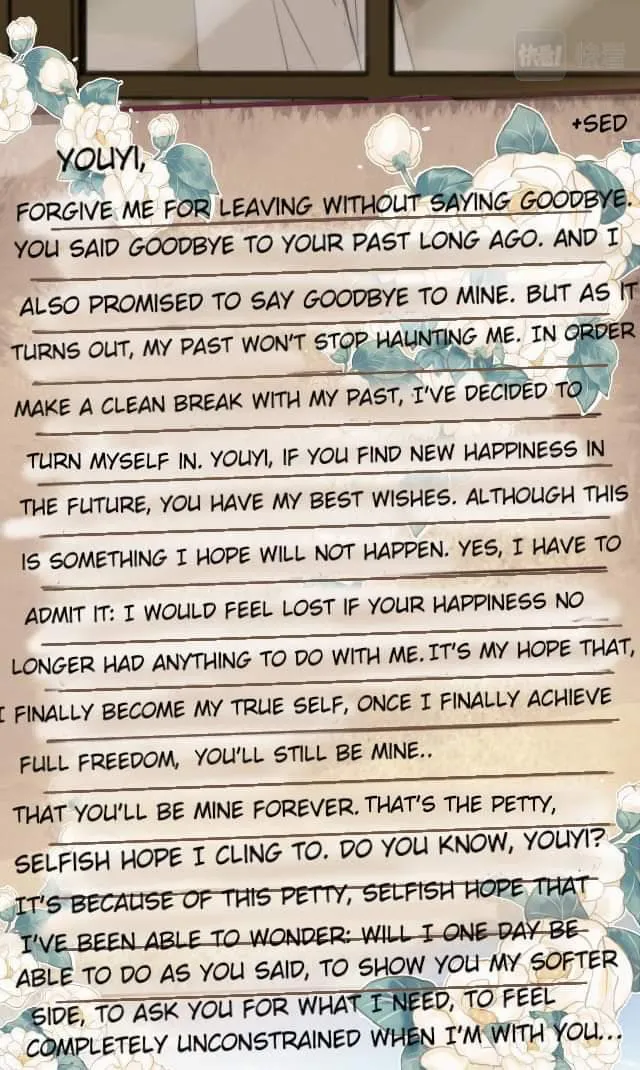 快看! 快看
+SED
YOUYI,
FORGIVE ME FOR LEAVING WITHOUT SAYING GOODBYE.
YOU SAID GOODBYE TO YOUR PAST LONG AGO. AND I
ALSO PROMISED TO SAY GOODBYE TO MINE. BUT AS IT
TURNS OUT, MY PAST WON'T STOP HAUNTING ME. IN ORDER
MAKE A CLEAN BREAK WITH MY PAST, I'VE DECIDED TO
TURN MYSELF IN. YOUYI, IF YOU FIND NEW HAPPINESS IN
THE FUTURE, YOU HAVE MY BEST WISHES. ALTHOUGH THIS
IS SOMETHING I HOPE WILL NOT HAPPEN. YES, I HAVE TO
ADMIT IT: I WOULD FEEL LOST IF YOUR HAPPINESS NO
LONGER HAD ANYTHING TO DO WITH ME. IT'S MY HOPE THAT,
I FINALLY BECOME MY TRUE SELF, ONCE I FINALLY ACHIEVE
FULL FREEDOM, YOU'LL STILL BE MINE..
THAT YOU'LL BE MINE FOREVER. THAT'S THE PETTY,
SELFISH HOPE I CLING TO. DO YOU KNOW, YOUYI?
IT'S BECAUSE OF THIS PETTY, SELFISH HOPE THAT
I'VE BEEN ABLE TO WONDER: WILL I ONE DAY BE
ABLE TO DO AS YOU SAID, TO SHOW YOU MY SOFTER
SIDE, TO ASK YOU FOR WHAT I NEED, TO FEEL
COMPLETELY UNCONSTRAINED WHEN I'M WITH YOU...